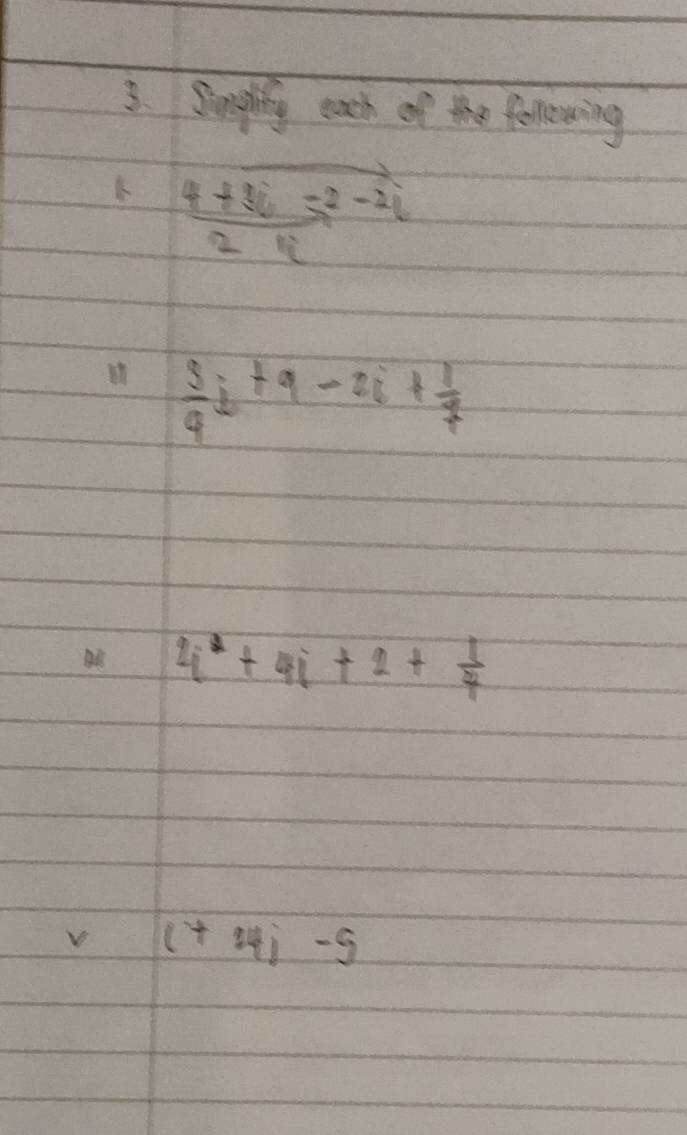 3. Simplify each of the following
i 4 + 3i - 2 - 2i
2 i
ii 3/4 i + 9 - 2i + 1/4
iii 2i² + 4i + 2 + 1/4
v i + 34i - 5